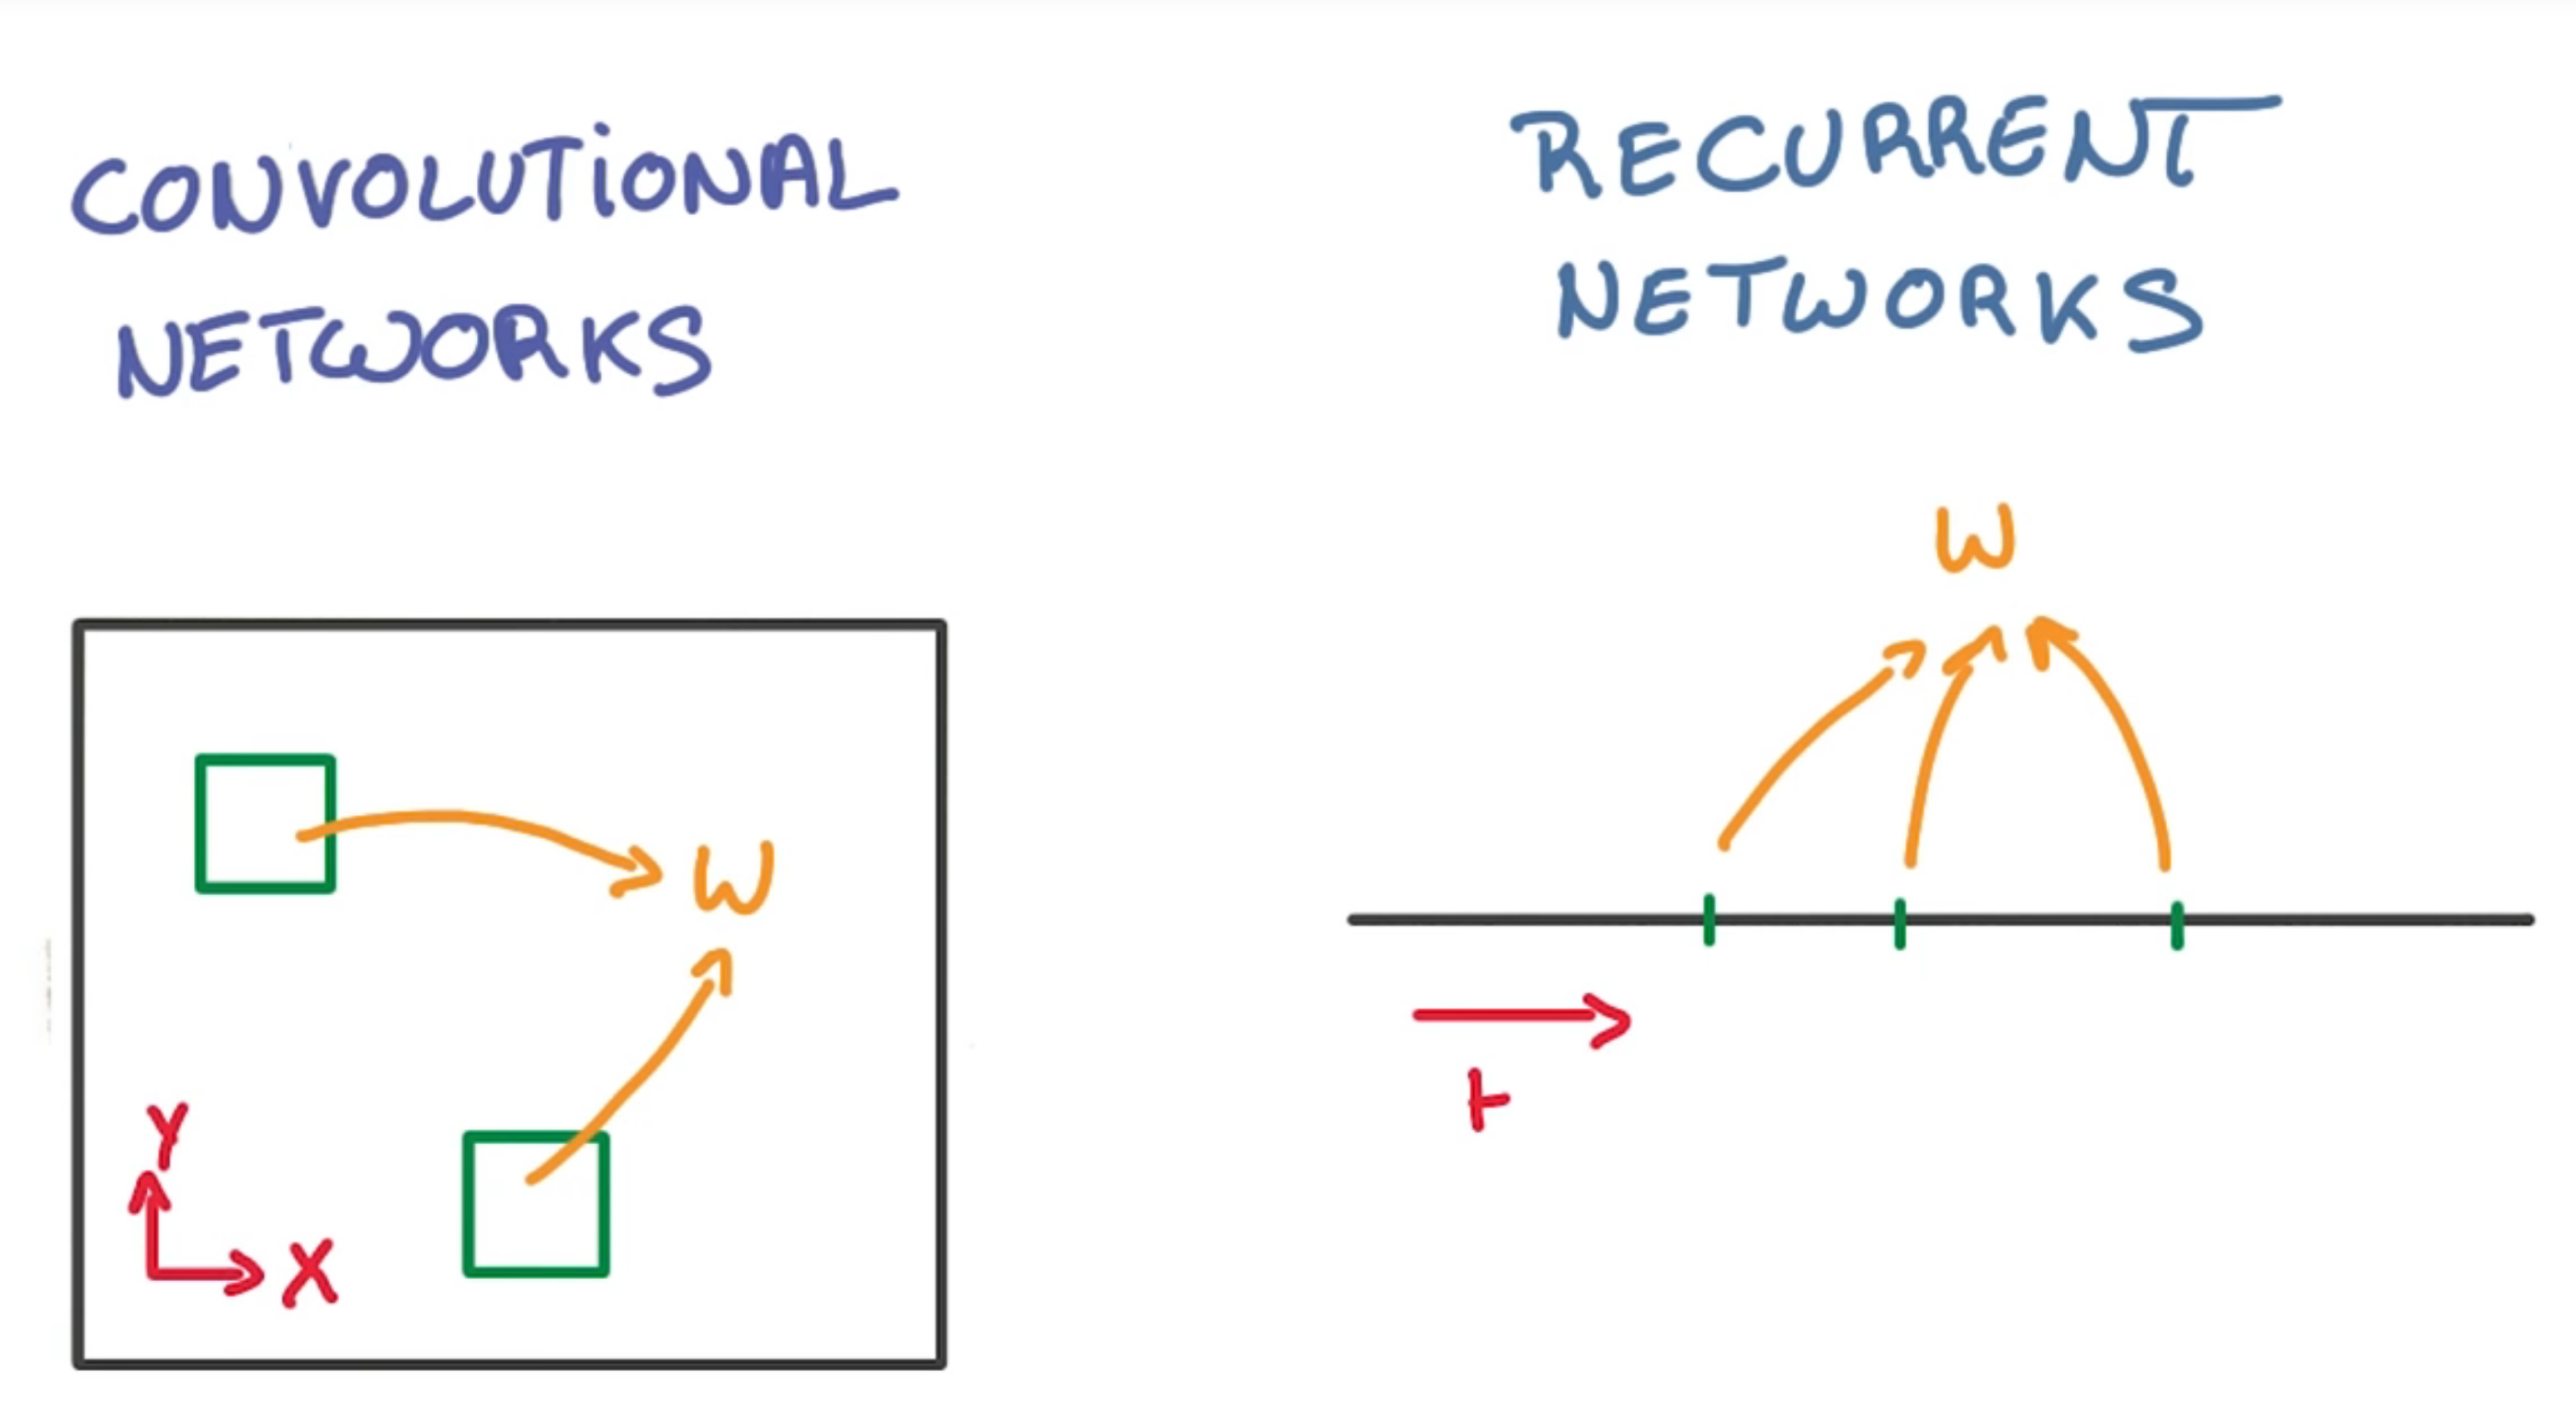 CONVOLUTIONAL
NETWORKS
W
Y
X
RECURRENT
NETWORKS
W
t